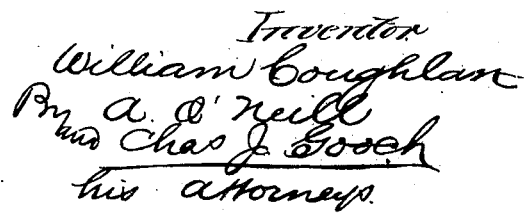 Inventor
William Coughlan
By A. O'Neill
and Chas J. Gooch
his attorneys.